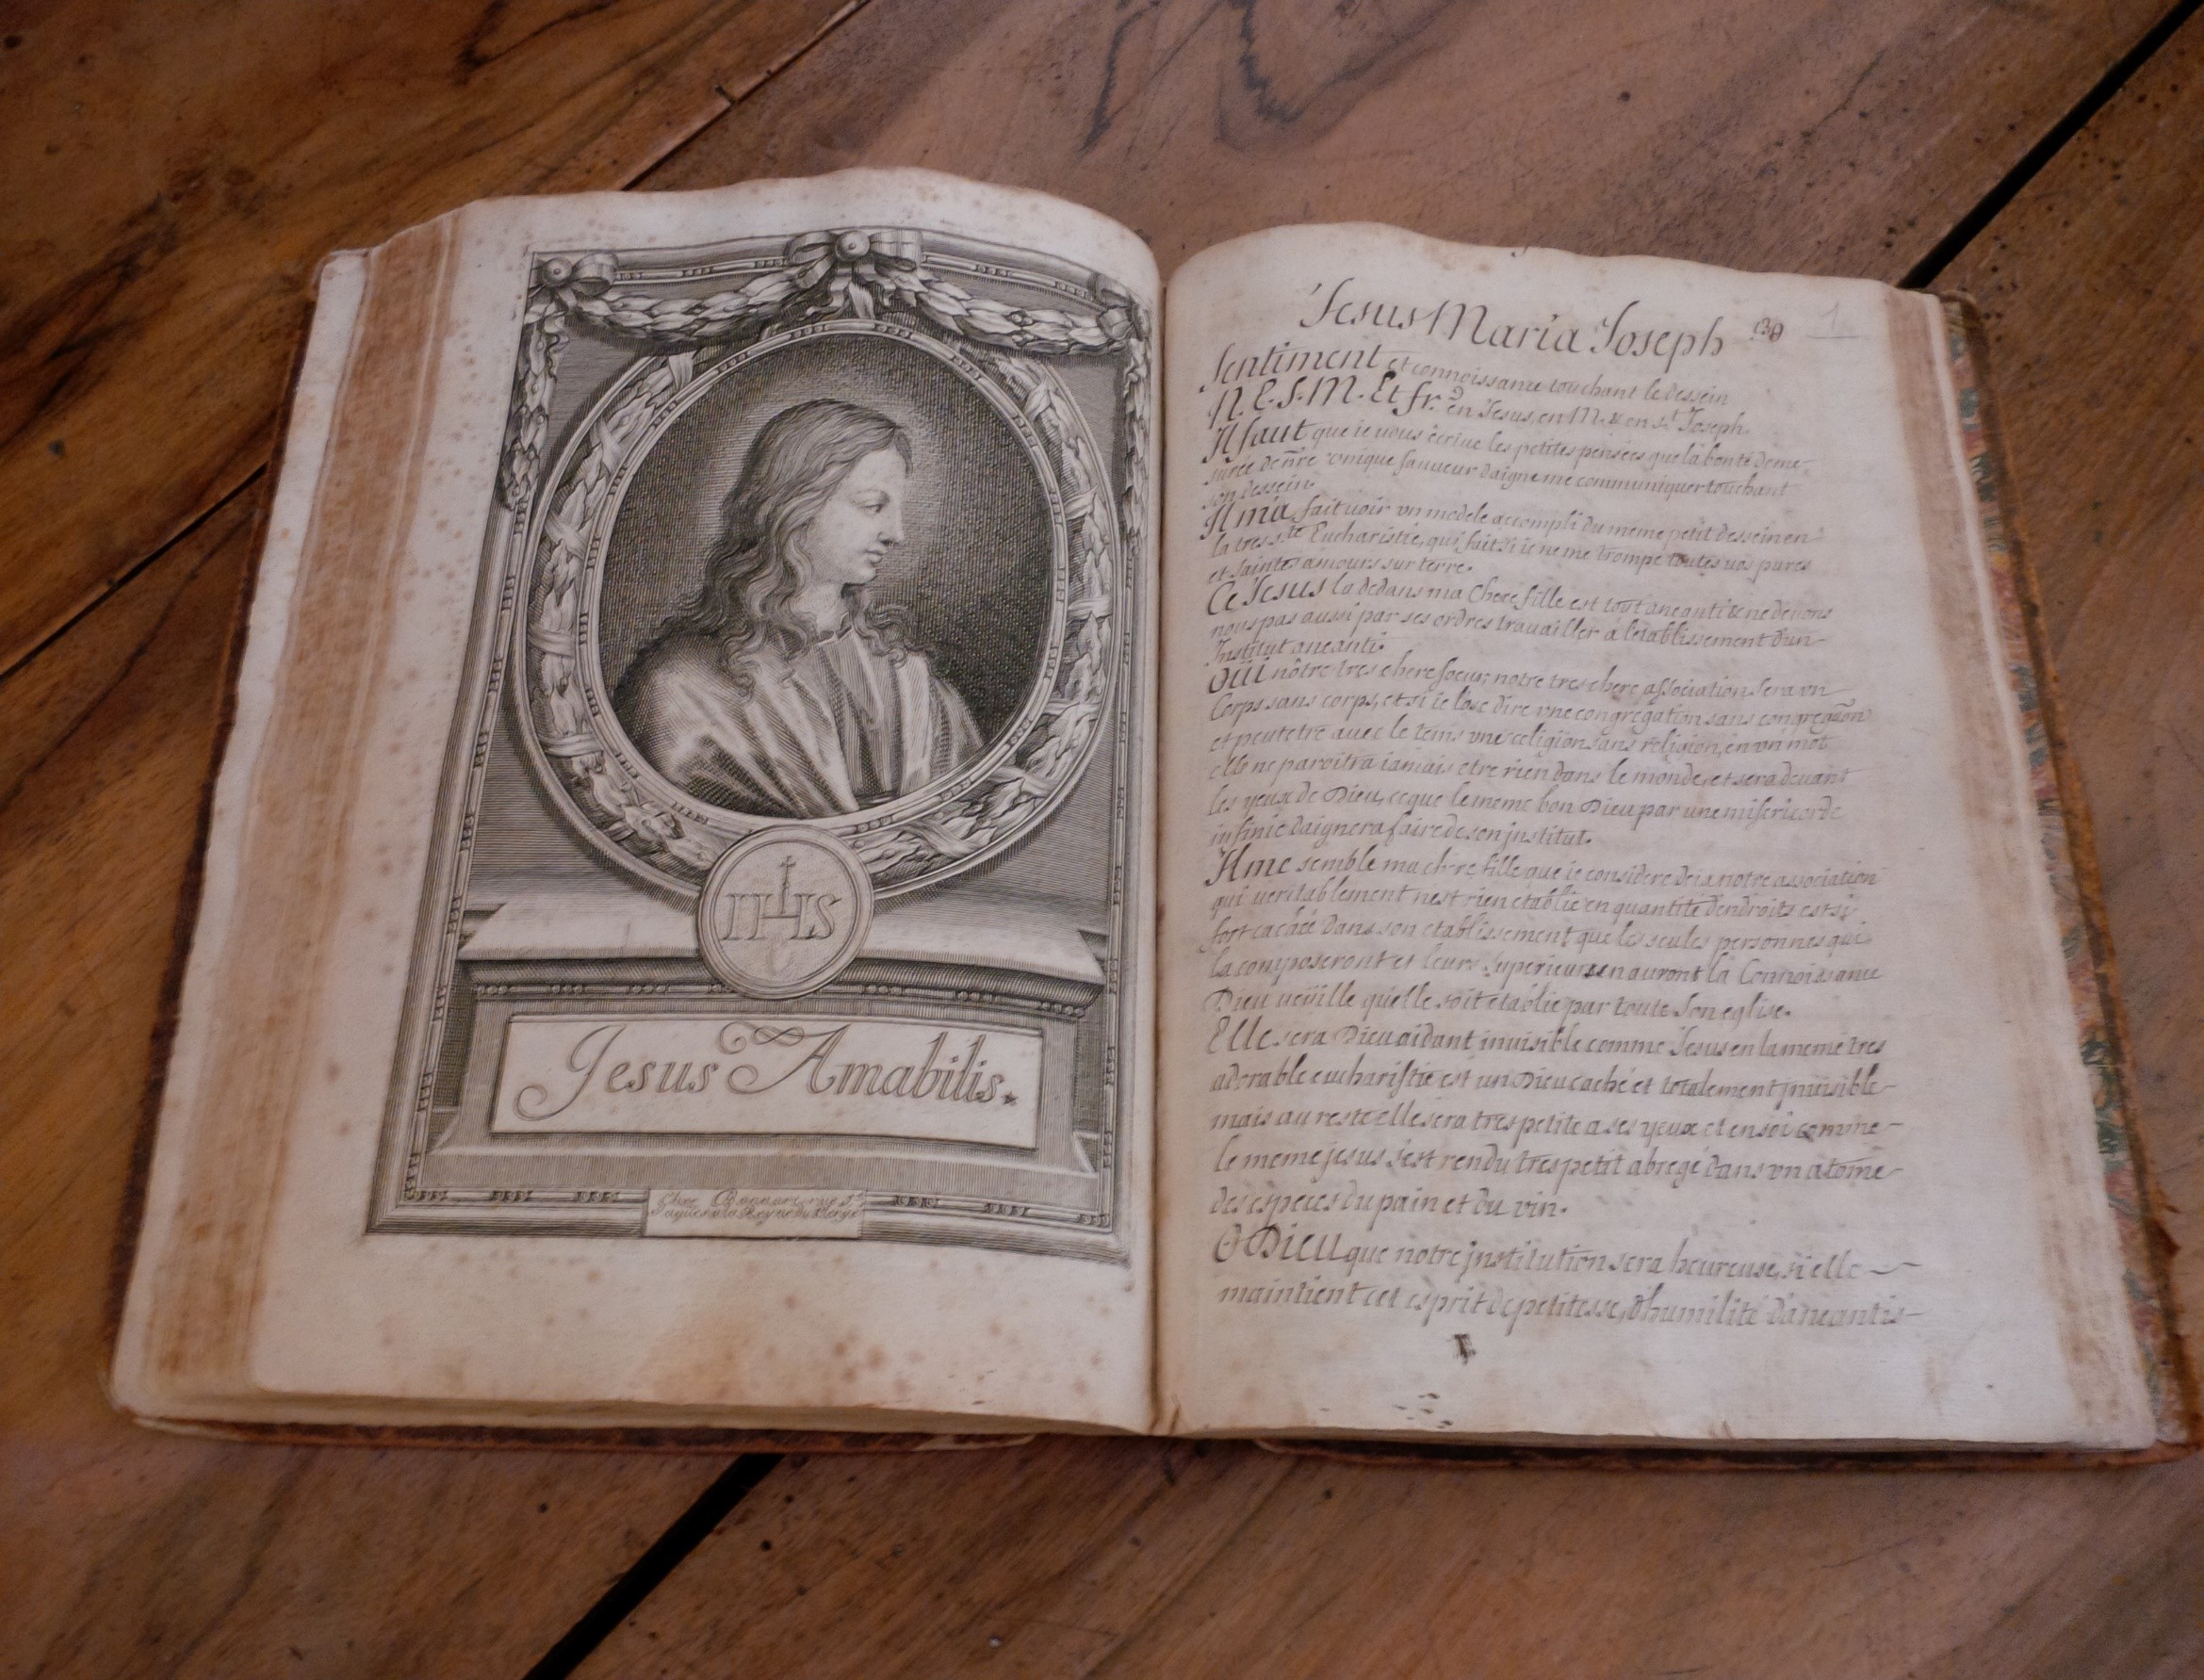 IHS
Jesus Amabilis.
Chez Bonnart rue St
Jaques a la
Jesus Maria Joseph
1
Sentiment et connoissance touchant le dessein
N. C. S. M. Et fr. en Jesus, en M. & en st Joseph.
Il faut que ie vous écrive les petites pensées que la bonté deme-
surée de nre vnique sauueur daigne me communiquer touchant
son dessein.
Il ma fait voir vn modele accompli du meme petit dessein en
la tres ste Eucharistie, qui fait si ie ne me trompe toutes vos pures
et saintes amours sur terre.
Ce Jesus la dedans ma chere fille est tout aneanti & ne devons
nous pas aussi par ses ordres travailler a letablissement d'un
Institut aneanti.
OUi nôtre tres chere soeur, notre tres chere association sera vn
Corps sans corps, et si ie lose dire vne congregation sans congregaon
et peutetre avec le tems vne religion sans religion, en vn mot
elle ne paroitra iamais etre rien dans le monde, et sera devant
les yeux de Dieu, ce que le meme bon Dieu par une misericorde
infinie daignera faire de son institut.
Il me semble ma chere fille que ie considere deia notre association
qui veritablement nest rien etablie en quantité dendroits et si
fort cachée dans son etablissement que les seules personnes qui
la composeront et leurs superieurs en auront la Connoissance
Dieu veüille quelle soit etablie par toute son eglise.
Elle sera Dieu aidant invisible comme Jesus en la meme tres
adorable eucharistie est un Dieu caché et totalement jnuisible
mais au reste elle sera tres petite a ses yeux et en soi comme
le meme jesus s'est rendu tres petit abregé dans vn atome
des especes du pain et du vin.
O Dieu que notre jnstitution sera heureuse, si elle
maintient cet esprit de petitesse, d'humilité d'aneantis-